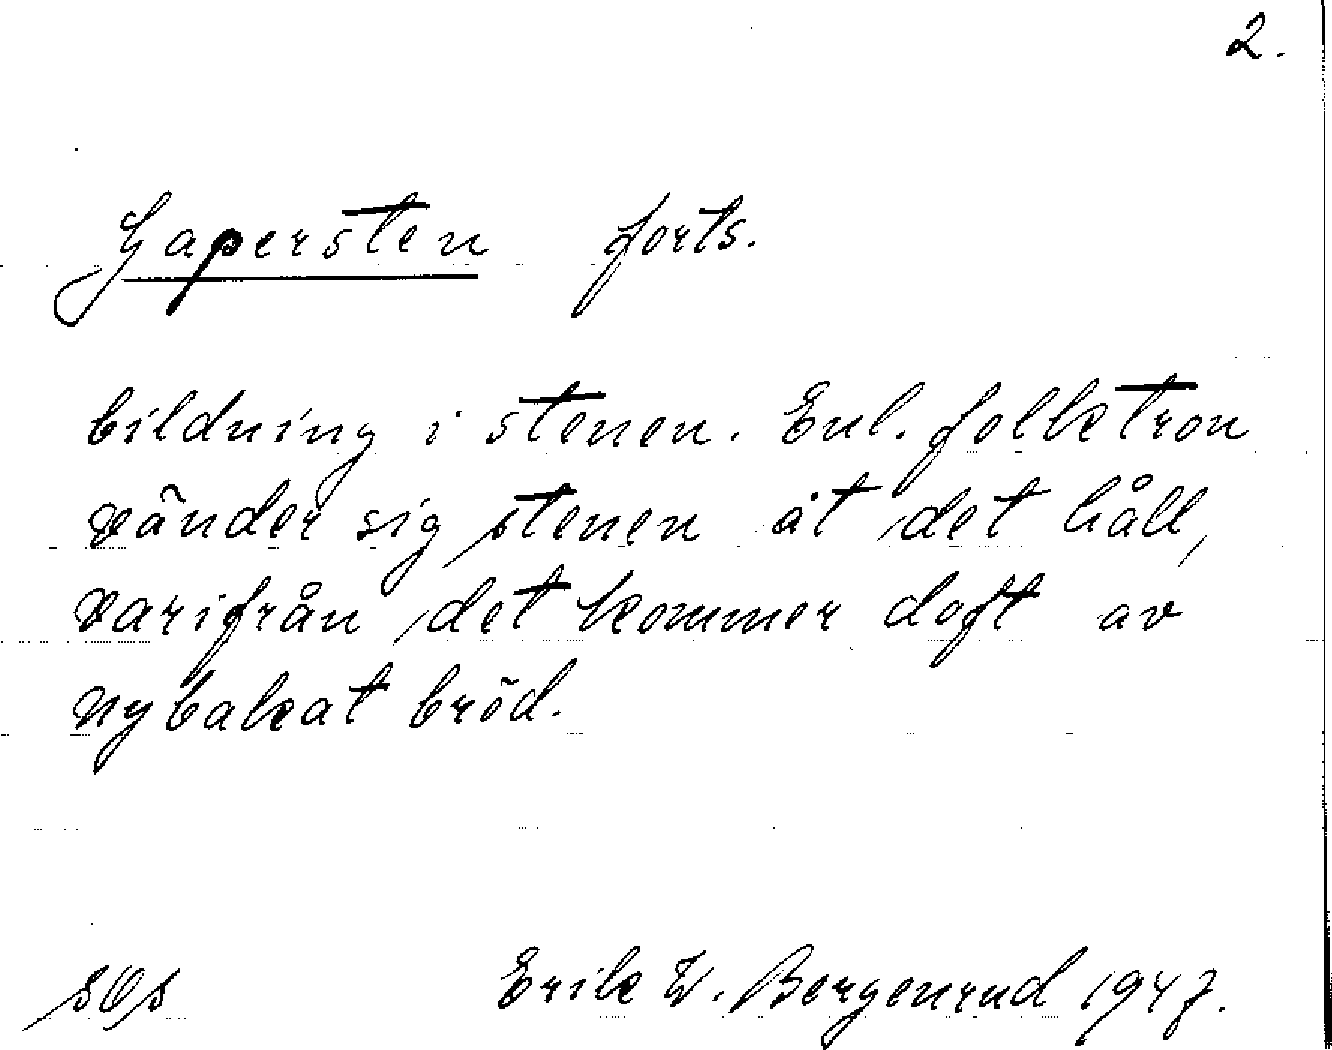 2.
Gapersten forts.
bildning i stenen. Enl. folktron
vänder sig stenen åt det håll,
varifrån det kommer doft av
nybakat bröd.
Erik W. Bergenrud 1947.